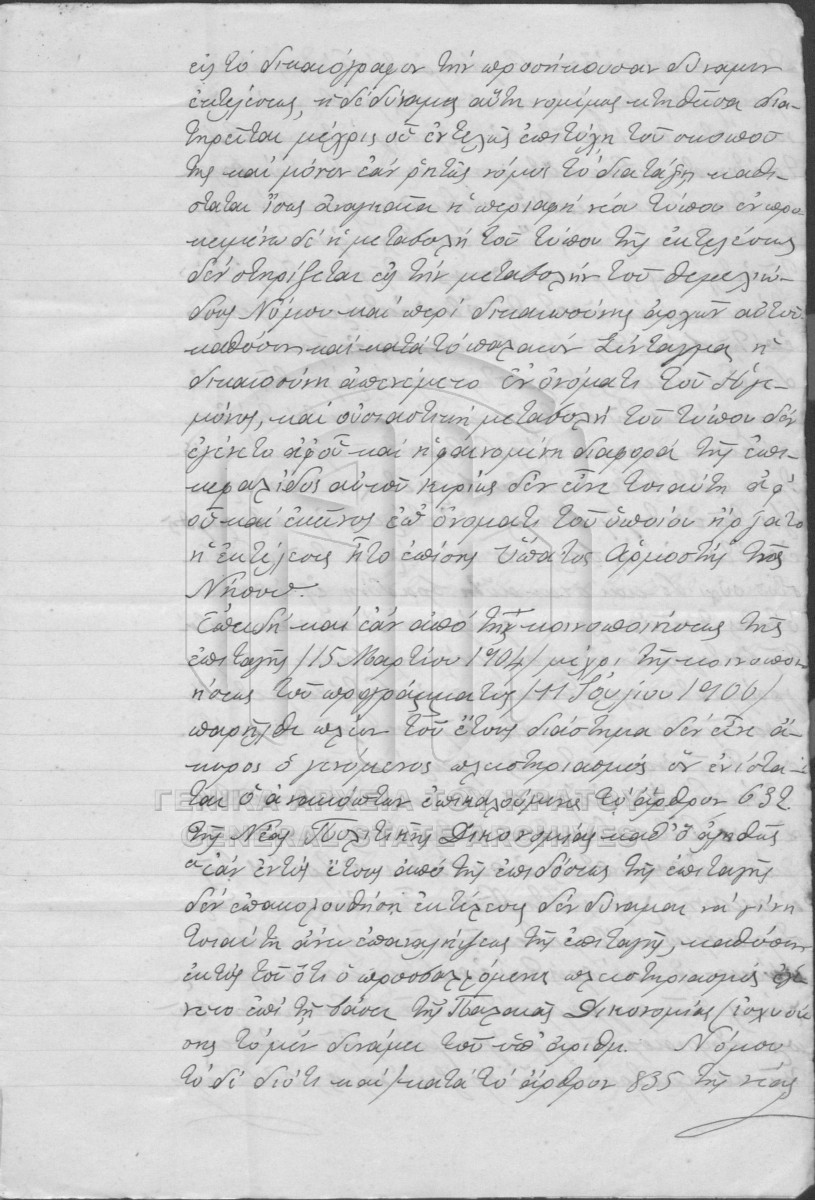 εἰς τὸ δικαιόγραφον τὴν προσήκουσαν δύναμιν
ἐκτελέσεως, ἡ δὲ δύναμις αὕτη νομίμως κτηθεῖσα δια-
τηρεῖται μέχρις οὗ ἐντελῶς ἐπιτύχῃ τοῦ σκοποῦ
της καὶ μόνον ἐὰν ῥητῶς νόμος τὸ διατάξῃ καθί-
σταται ἴσως ἀναγκαία ἡ περιαφὴ νέου τύπου ἐν προ
κειμένῳ δὲ ἡ μεταβολὴ τοῦ τύπου τῆς ἐκτελέσεως
δὲν στηρίζεται εἰς τὴν μεταβολὴν τοῦ θεμελιώ-
δους Νόμου καὶ περὶ δικαιοσύνης ἀρχῶν αὐτοῦ
καθόσον καὶ κατὰ τὸ παλαιὸν Σύνταγμα ἡ
δικαιοσύνη ἀπενέμετο ἐν ὀνόματι τοῦ Ἡγε-
μόνος, καὶ οὐσιαστικὴ μεταβολὴ τοῦ τύπου δὲν
ἐγένετο ἀφοῦ καὶ ἡ φαινομένη διαφορὰ τῆς ἐπι-
κεφαλίδος αὐτοῦ κυρίως δὲν εἶνε τοιαύτη ἀφ'
οὗ καὶ ἐκεῖνος ἐπ' ὀνόματι τοῦ ὁποίου ἤρξατο
ἡ ἐκτέλεσις ἦτο ἐπίσης Ὕπατος Ἁρμοστὴς τῆς
Νήσου.
Ἐπειδὴ καὶ ἐὰν ἀπὸ τῆς κοινοποιήσεως τῆς
ἐπιταγῆς /15 Μαρτίου 1904/ μέχρι τῆς κοινοποι
ήσεως τοῦ προγράμματος /11 Ἰουλίου 1906/
παρῆλθε πλέον τοῦ ἔτους διάστημα δὲν εἶνε ἄ-
κυρος ὁ γενόμενος πλειστηριασμὸς ὃν ἐνίστα-
ται ὁ ἀνακόπτων ἐπικαλούμενος τὸ ἄρθρον 632
τῆς Νέας Πολιτικῆς Δικονομίας καθ' ὃ ἀληθῶς
"ἐὰν ἐντὸς ἔτους ἀπὸ τῆς ἐπιδόσεως τῆς ἐπιταγῆς
δὲν ἐπακολουθήσῃ ἐκτέλεσις δὲν δύναται νὰ γίνῃ
τοιαύτη ἄνευ ἐπαναλήψεως τῆς ἐπιταγῆς, καθόσον
ἐκτὸς τοῦ ὅτι ὁ προσβαλλόμενος πλειστηριασμὸς ἐγέ
νετο ἐπὶ τῇ βάσει τῆς Παλαιᾶς Δικονομίας /ἰσχυσά
σης τὸ μὲν δυνάμει τοῦ ὑπ' ἀριθμ. Νόμου
τὸ δὲ διότι καὶ/κατὰ τὸ ἄρθρον 835 τῆς νέας
ΓΕΝΙΚΑ ΑΡΧΕΙΑ ΤΟΥ ΚΡΑΤΟΥΣ
GENERAL STATE ARCHIVES